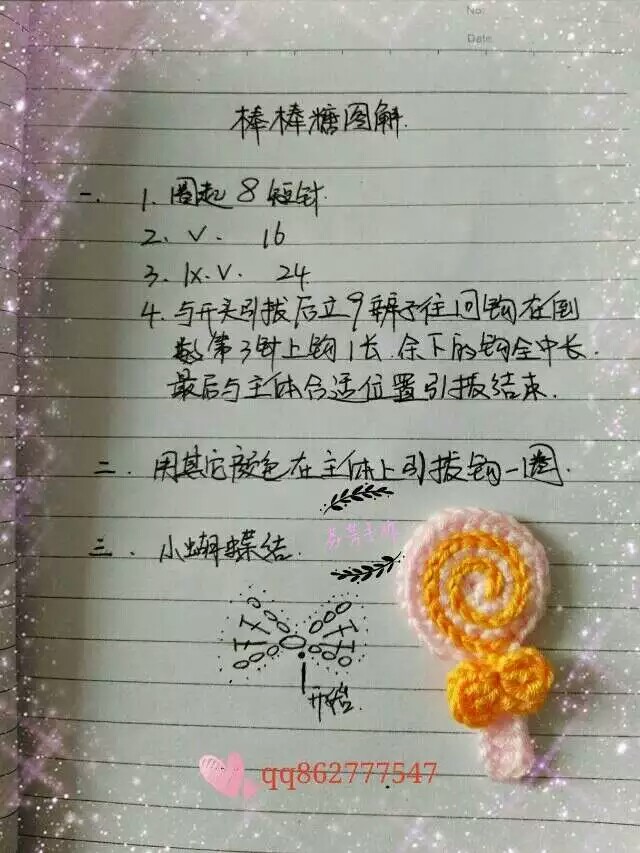 No:
Date
棒棒糖图解.
一. 1. 圈起 8 短针.
2. V. 16
3. 1X.V. 24.
4. 与开头引拔后立9辫子往回钩在倒
数第3针上钩1长.余下的钩全中长.
最后与主体合适位置引拔结束.
二. 用其它颜色在主体上引拔钩一圈.
三. 小蝴蝶结.
开始.
qq862777547